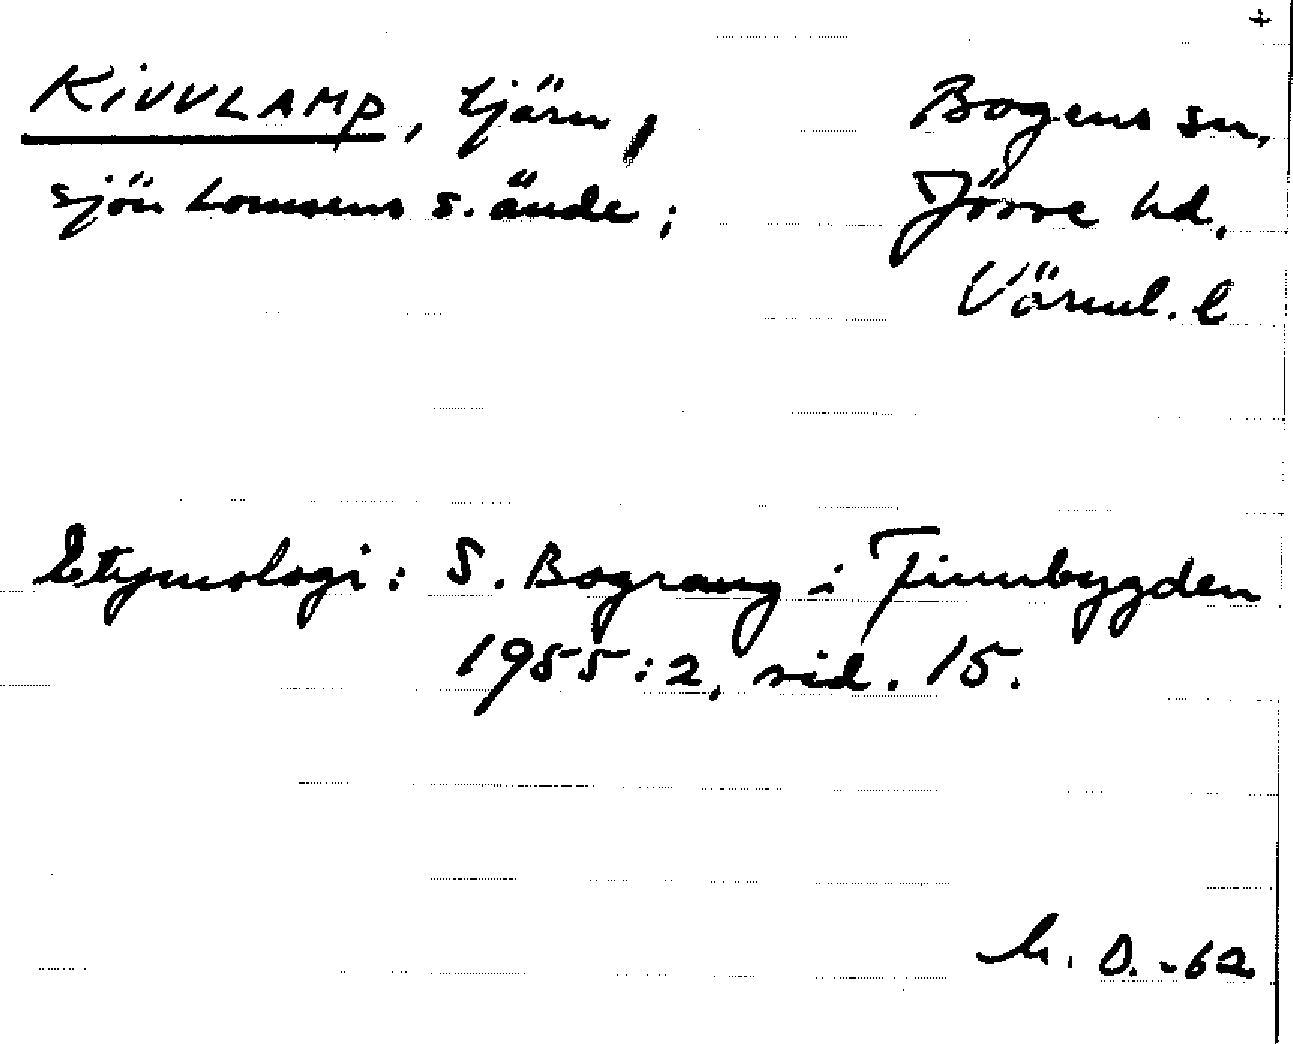 +
KiVVLAMP, tjärn, Bogens sn,
sjön Lomsens s. ände; Jösse hd,
Värml. l
Etymologi: S. Bograng i Finnbygden
1955:2, sid. 15.
O. -62